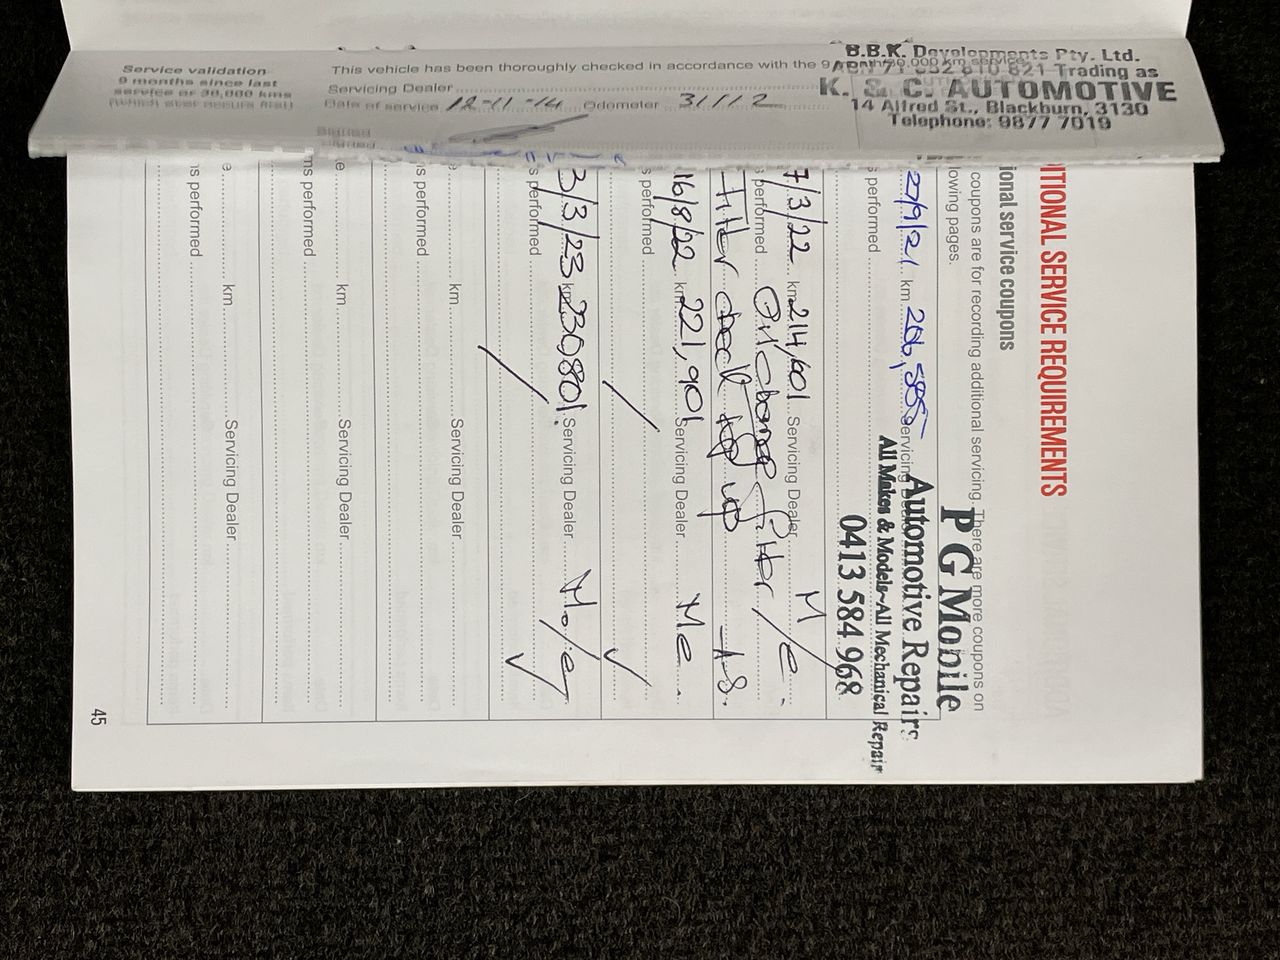 Service validation
9 months since last
service or 30,000 kms
(which ever occurs first)
This vehicle has been thoroughly checked in accordance with the 9 month/30,000 km service.
Servicing Dealer
Date of service 12-11-14 Odometer 31112
B.B.K. Developments Pty. Ltd.
ABN 71 632 810 821 Trading as
K. & C. AUTOMOTIVE
14 Alfred St., Blackburn, 3130
Telephone: 9877 7019
ITIONAL SERVICE REQUIREMENTS
ional service coupons
coupons are for recording additional servicing. There are more coupons on
lowing pages.
27/9/21 km 206,585 Servicing
s performed
PG Mobile
Automotive Repairs
All Makes & Models~All Mechanical Repair
0413 584 968
7/3/22 km 214,601 Servicing Dealer M/e.
s performed Oil change filter /
filter
16/8/22 km 221,901 Servicing Dealer Me.
s performed
3/3/23 km 230801 Servicing Dealer
s performed
e km Servicing Dealer
ns performed
e km Servicing Dealer
ns performed
e km Servicing Dealer
ns performed
45